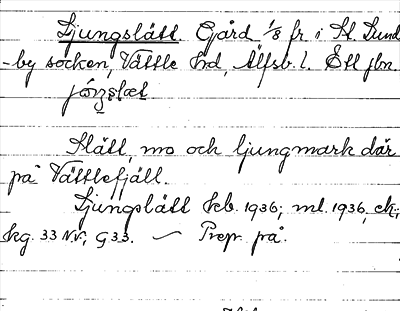 Ljungslätt. Gård 1/8 fr. i St. Lund
-by socken, Vättle hd, Älfsb. l. Ett jbn.
Slätt, mo och ljungmark där
på Vättlefjäll.
Ljungslätt kb. 1936; ml. 1936, ek;
kg. 33 NV; G33. — Prep. på.